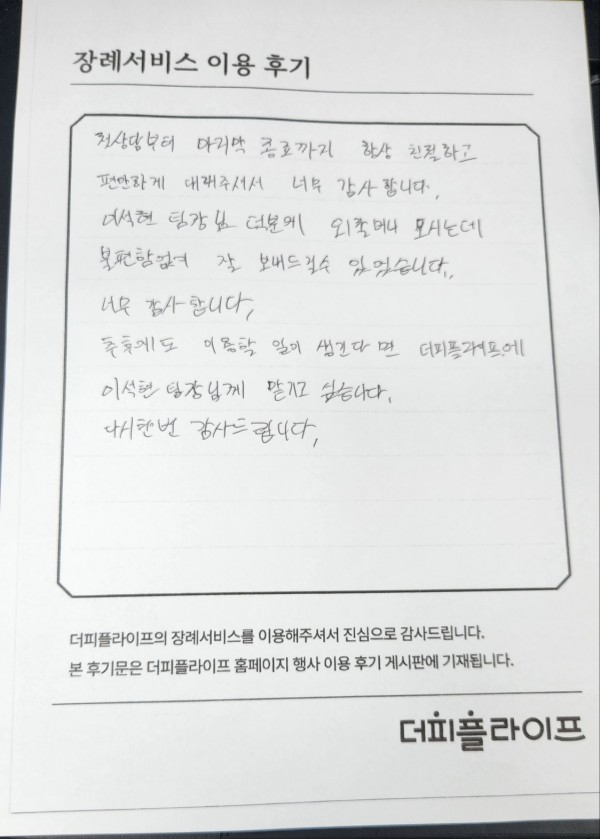 장례서비스 이용 후기
첫상담부터 마지막 종료까지 항상 친절하고
편안하게 대해주셔서 너무 감사합니다.
이석현 팀장님 덕분에 외할머니 모시는데
불편함없이 잘 보내드릴수 있었습니다.
너무 감사합니다,
추후에도 이용할 일이 생긴다면 더피플라이프에
이석현 팀장님께 맡기고 싶습니다.
다시한번 감사드립니다,
더피플라이프의 장례서비스를 이용해주셔서 진심으로 감사드립니다.
본 후기문은 더피플라이프 홈페이지 행사 이용 후기 게시판에 기재됩니다.
더피플라이프